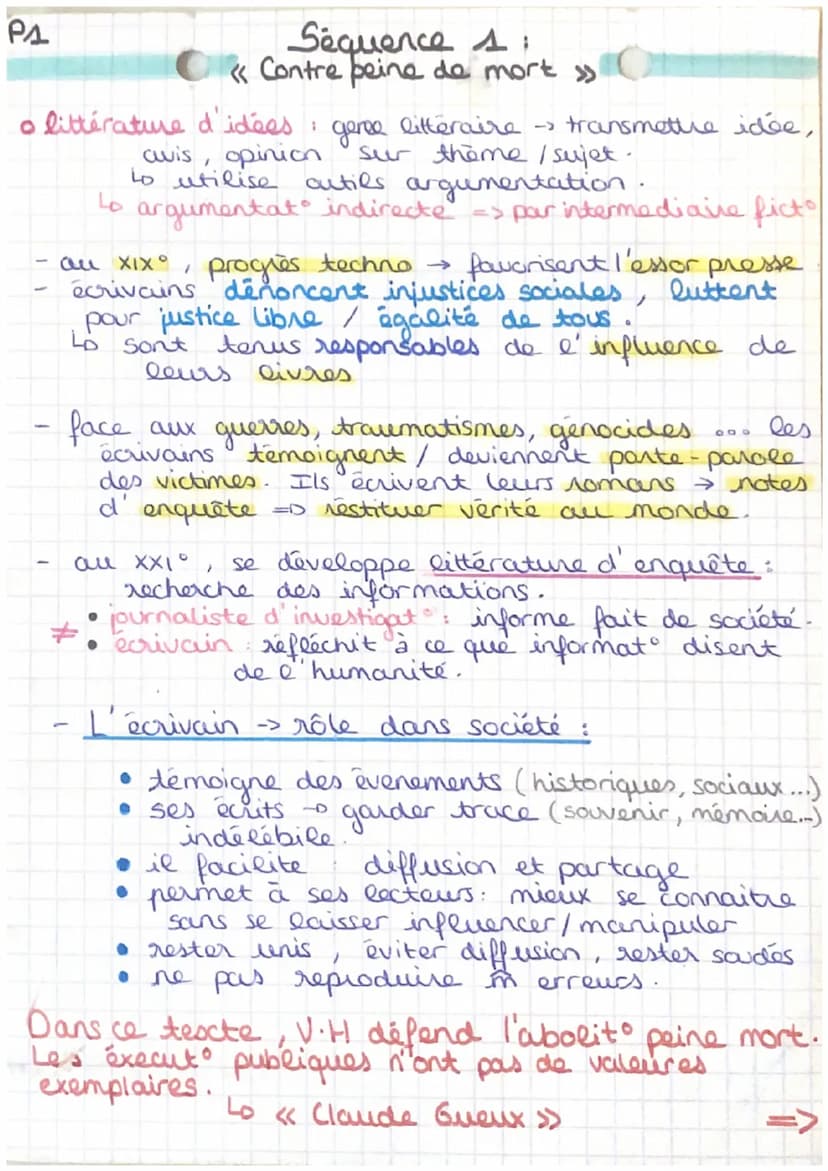 P1
Séquence 1 :
« Contre peine de mort »
o littérature d'idées : genre littéraire -> transmettre idée,
avis, opinion sur thème / sujet.
↳ utilise outils argumentation.
↳ argumentat° indirecte => par intermediaire fict°
- au XIX°, progrès techno → favorisent l'essor presse
- écrivains dénoncent injustices sociales, luttent
pour justice libre / égalité de tous.
↳ sont tenus responsables de l'influence de
leurs livres
- face aux guerres, traumatismes, génocides ... les
écrivains témoignent / deviennent porte-parole
des victimes. Ils écrivent leurs romans → notes
d'enquête => réstituer vérité au monde.
- au XXI°, se développe littérature d'enquête :
recherche des informations.
≠ • journaliste d'investigat° : informe fait de société.
• écrivain : réfléchit à ce que informat° disent
de l'humanité.
- L'écrivain -> rôle dans société :
• témoigne des évenements (historiques, sociaux...)
• ses écrits → garder trace (souvenir, mémoire...)
indélébile.
• il facilite : diffusion et partage
• permet à ses lecteurs : mieux se connaitre
sans se laisser influencer / manipuler
• rester unis, éviter diffusion, rester soudés
• ne pas reproduire m̂ erreurs.
Dans ce texte, V.H défend l'abolit° peine mort.
Les éxecut° publiques n'ont pas de valeures
exemplaires.
↳ « Claude Gueux »
=>